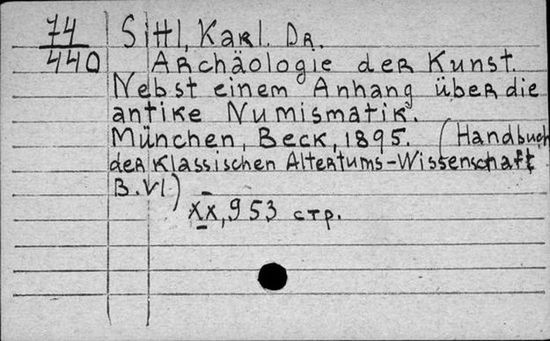 74 Sittl, Karl. Dr.
440 Archäologie der Kunst.
Nebst einem Anhang über die
antike Numismatik.
München, Beck, 1895. (Handbuch
der Klassischen Altertums-Wissenschaft
B.VI)
XX, 953 стр.